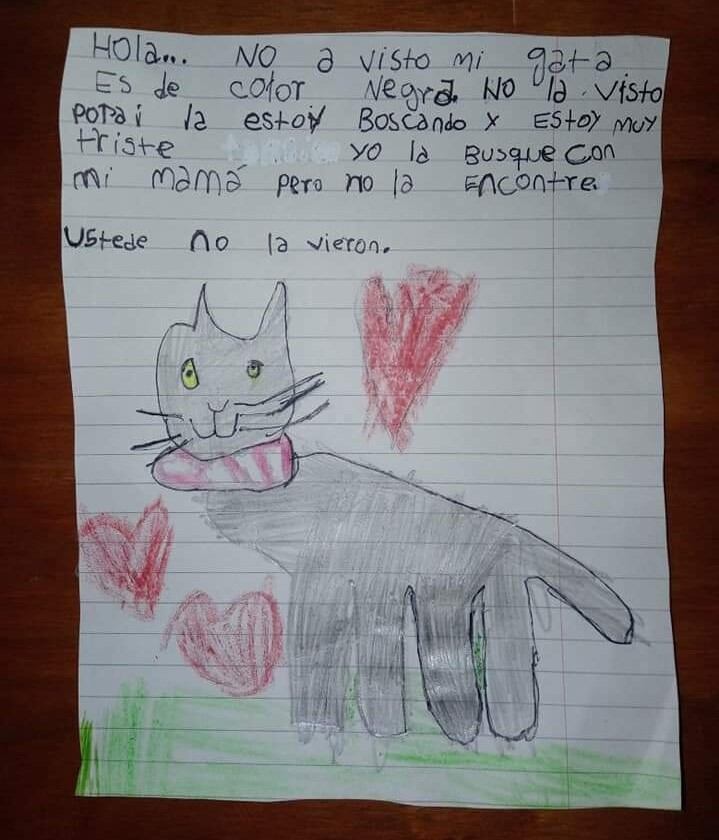 Hola... NO a visto mi gata
Es de color Negra. NO la visto
porai la estoy Boscando y Estoy muy
triste yo la Busque con
mi mamá pero no la Encontre.
Ustede no la vieron.